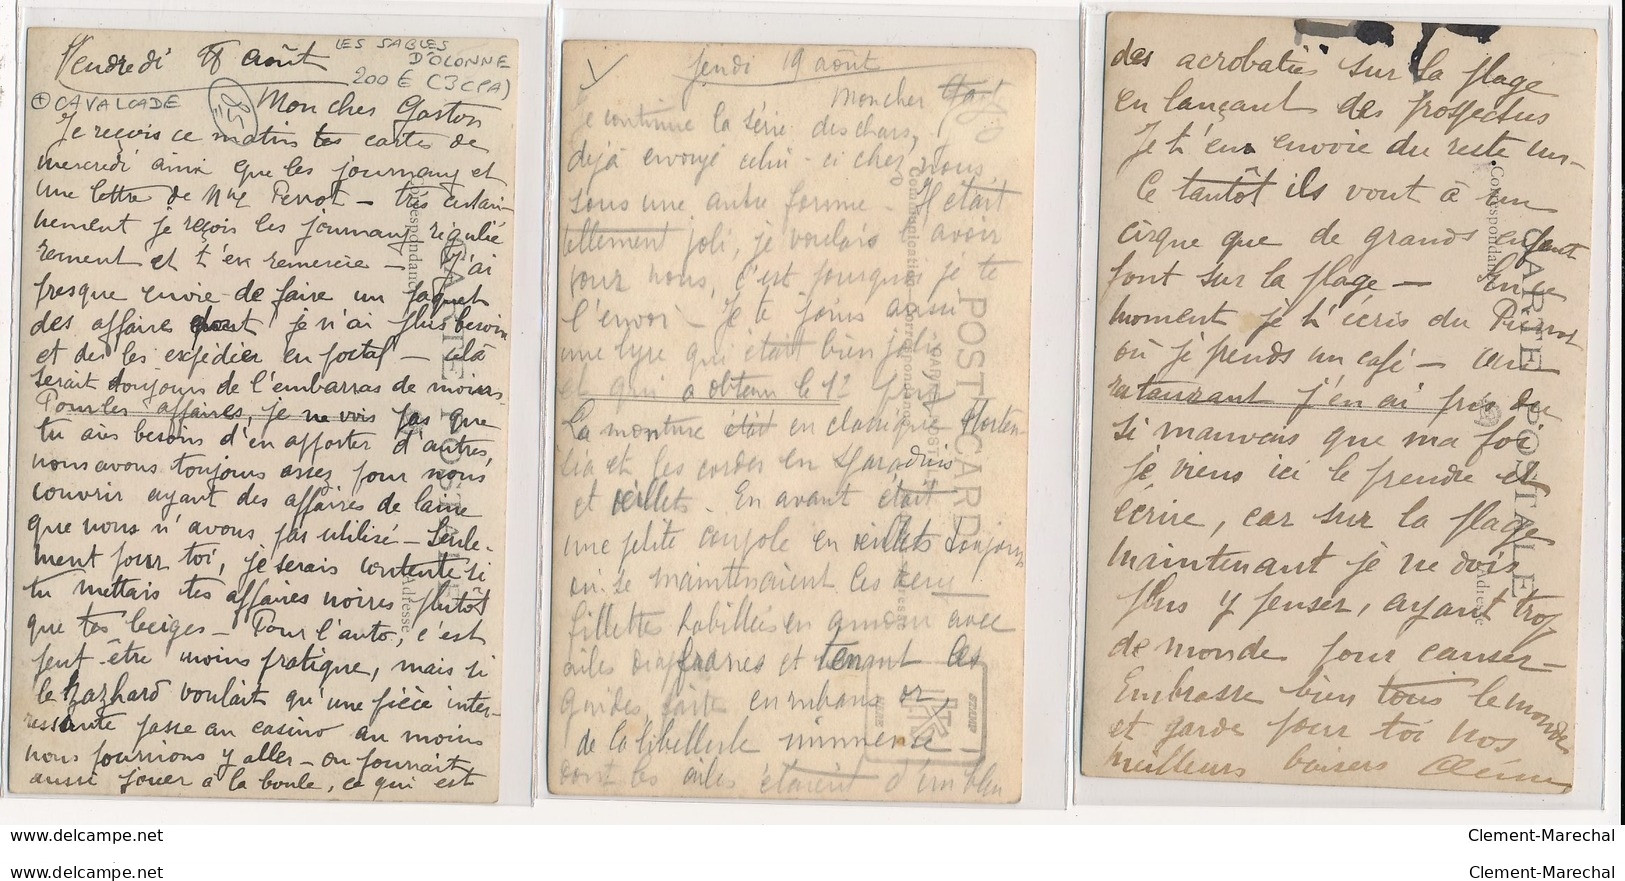 Vendredi août
LES SABLES
D'OLONNE
200 E (3 CPA)
+ CAVALCADE
85
Mon cher Gaston
Je reçois ce matin tes cartes de
mercredi ainsi que les journaux et
une lettre de Mme Perrot - très certai-
nement je reçois les journaux réguliè
rement et t'en remercie - J'ai
presque envie de faire un paquet
des affaires dont je n'ai plus besoin
et de les expédier en postal - cela
serait toujours de l'embarras de moins.
Pour les affaires, je ne vois pas que
tu aies besoin d'en apporter d'autres,
nous avons toujours assez pour nous
couvrir ayant des affaires de laine
que nous n'avons pas utilisé - Seule-
ment pour toi, je serais contente si
tu mettais tes affaires noires plutôt
que tes beiges - Pour l'auto, c'est
peut-être moins pratique, mais si
le hazhard voulait qu'une pièce inter-
ressante passe au casino au moins
nous pourrions y aller - on pourrait
aussi jouer à la boule, ce qui est
CARTE POSTALE
Correspondance
Adresse
Jeudi 19 août
Mon cher
Je continue la série des chars,
déjà envoyé celui-ci chez nous
sous une autre forme - Il était
tellement joli, je voulais l'avoir
pour nous, c'est pourquoi je te
l'envoi - Je te joins aussi
une lyre qui était bien jolie
et qui a obtenu le 1er prix
La monture était en classique Horten-
sia et les cordes en
et œillets. En avant était
une petite coupole en œillets toujours
où se maintenaient les
fillettes habillées en amour avec
ailes diaffanes et tenant les
guides faite en rubans or
de la libellule immense -
dont les ailes étaient d'un bleu
POST CARD
CARTE POSTALE
Communication
Correspondance
Adresse
STAMP
HERE
des acrobaties sur la plage
en lançant des prospectus
Je t'en envoie du reste un -
Ce tantôt ils vont à un
cirque que de grands enfant
font sur la plage - En ce
moment je t'écris du
où je prends un café - au
rataurant j'en ai pris du
si mauvais que ma foi
je viens ici le prendre et
écrire, car sur la plage
maintenant je ne dois
plus y penser, ayant trop
de monde pour causer -
Embrasse bien tous le monde
et garde pour toi nos
meilleurs baisers
CARTE POSTALE
Correspondance
Adresse
www.delcampe.net
Clement-Marechal
www.delcampe.net
Clement-Marechal